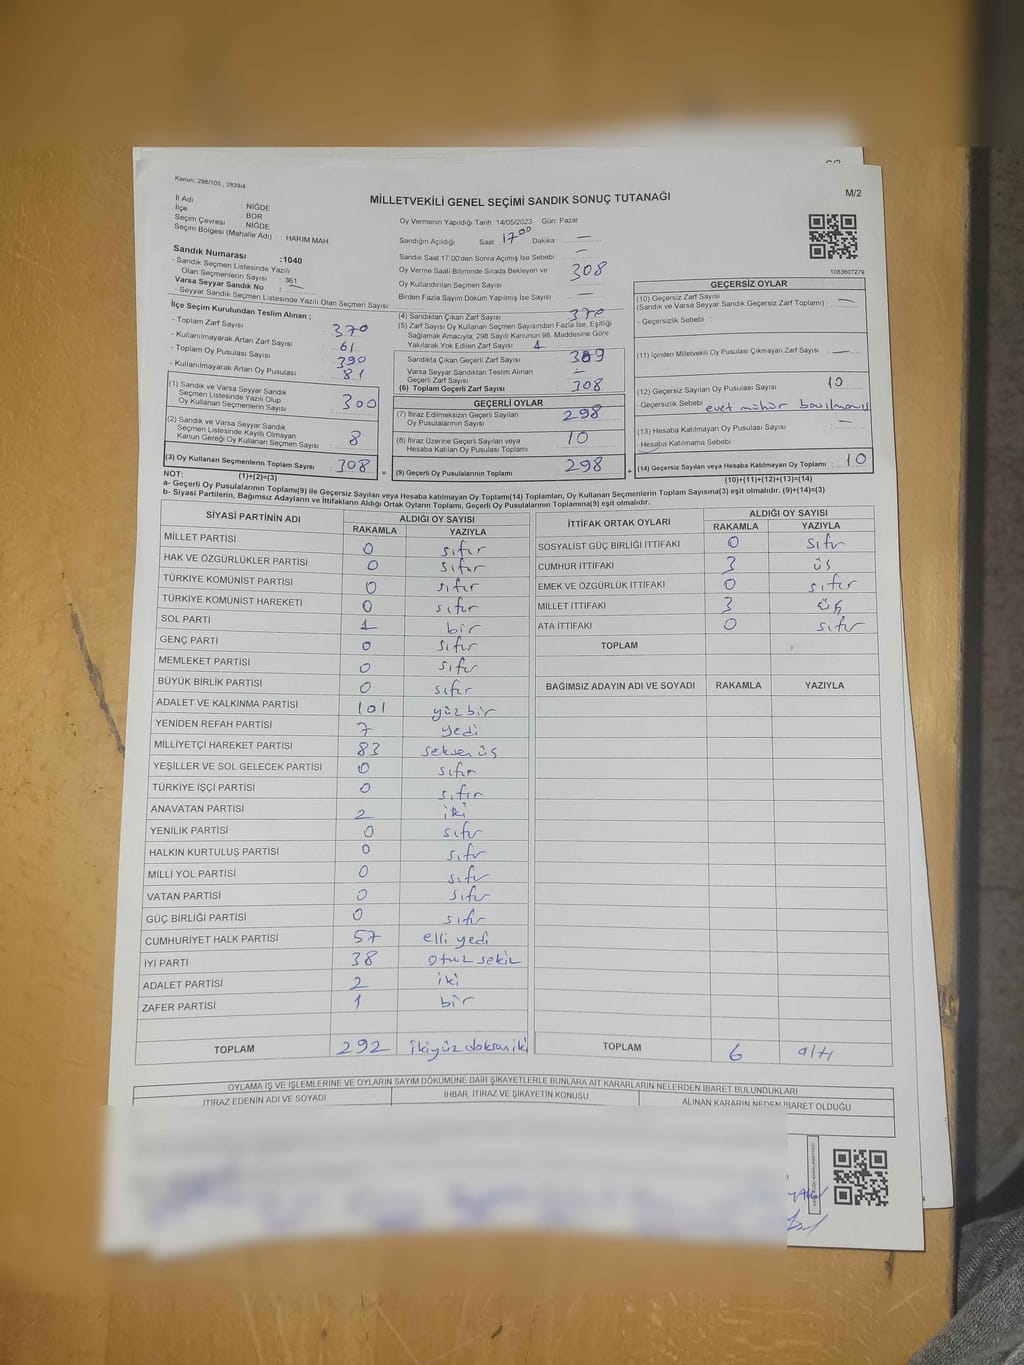 Kanun: 298/105 , 2839/4
MİLLETVEKİLİ GENEL SEÇİMİ SANDIK SONUÇ TUTANAĞI
M/2
İl Adı : NİĞDE
İlçe : BOR
Seçim Çevresi : NİĞDE
Seçim Bölgesi (Mahalle Adı) : HARIM MAH
Sandık Numarası :1040
- Sandık Seçmen Listesinde Yazılı
Olan Seçmenlerin Sayısı : 361
Varsa Seyyar Sandık No : —
- Seyyar Sandık Seçmen Listesinde Yazılı Olan Seçmen Sayısı:
Oy Vermenin Yapıldığı Tarih :14/05/2023 Gün: Pazar
Sandığın Açıldığı Saat : 17 00 Dakika : —
Sandık Saat 17.00'den Sonra Açılmış İse Sebebi : —
Oy Verme Saati Bitiminde Sırada Bekleyen ve
Oy Kullandırılan Seçmen Sayısı 308
Birden Fazla Sayım Döküm Yapılmış İse Sayısı —
1083607279
İlçe Seçim Kurulundan Teslim Alınan ;
- Toplam Zarf Sayısı : 370
- Kullanılmayarak Artan Zarf Sayısı : 61
- Toplam Oy Pusulası Sayısı : 390
- Kullanılmayarak Artan Oy Pusulası : 81
(1) Sandık ve Varsa Seyyar Sandık
Seçmen Listesinde Yazılı Olup
Oy Kullanan Seçmenlerin Sayısı : 300
(2) Sandık ve Varsa Seyyar Sandık
Seçmen Listesinde Kayıtlı Olmayan
Kanun Gereği Oy Kullanan Seçmen Sayısı : 8
(3) Oy Kullanan Seçmenlerin Toplam Sayısı : 308
(1)+(2)=(3)
(4) Sandıktan Çıkan Zarf Sayısı : 370
(5) Zarf Sayısı Oy Kullanan Seçmen Sayısından Fazla İse, Eşitliği
Sağlamak Amacıyla; 298 Sayılı Kanunun 98. Maddesine Göre
Yakılarak Yok Edilen Zarf Sayısı : 1
Sandıkta Çıkan Geçerli Zarf Sayısı :
Varsa Seyyar Sandıktan Teslim Alınan
Geçerli Zarf Sayısı : —
(6) Toplam Geçerli Zarf Sayısı : 308
GEÇERLİ OYLAR
(7) İtiraz Edilmeksizin Geçerli Sayılan
Oy Pusulasının Sayısı : 298
(8) İtiraz Üzerine Geçerli Sayılan veya
Hesaba Katılan Oy Pusulası Sayısı : 10
= (9) Geçerli Oy Pusulalarının Toplamı : 298 +
GEÇERSİZ OYLAR
(10) Geçersiz Zarf Sayısı
(Sandık ve Varsa Seyyar Sandık Geçersiz Zarf Toplamı) : —
- Geçersizlik Sebebi :
(11) İçinden Milletvekili Oy Pusulası Çıkmayan Zarf Sayısı : —
(12) Geçersiz Sayılan Oy Pusulası Sayısı : 10
- Geçersizlik Sebebi : evet mühür basılmamış
(13) Hesaba Katılmayan Oy Pusulası Sayısı : —
- Hesaba Katılmama Sebebi :
(14) Geçersiz Sayılan veya Hesaba Katılmayan Oy Toplamı : 10
(10)+(11)+(12)+(13)=(14)
NOT:
a- Geçerli Oy Pusulalarının Toplamı(9) ile Geçersiz Sayılan veya Hesaba katılmayan Oy Toplamı(14) Toplamları, Oy Kullanan Seçmenlerin Toplam Sayısına(3) eşit olmalıdır. (9)+(14)=(3)
b- Siyasi Partilerin, Bağımsız Adayların ve İttifakların Aldığı Ortak Oyların Toplamı, Geçerli Oy Pusulalarının Toplamına(9) eşit olmalıdır.
SİYASİ PARTİNİN ADI ALDIĞI OY SAYISI
RAKAMLA YAZIYLA
MİLLET PARTİSİ 0 sıfır
HAK VE ÖZGÜRLÜKLER PARTİSİ 0 sıfır
TÜRKİYE KOMÜNİST PARTİSİ 0 sıfır
TÜRKİYE KOMÜNİST HAREKETİ 0 sıfır
SOL PARTİ 1 bir
GENÇ PARTİ 0 sıfır
MEMLEKET PARTİSİ 0 sıfır
BÜYÜK BİRLİK PARTİSİ 0 sıfır
ADALET VE KALKINMA PARTİSİ 101 yüz bir
YENİDEN REFAH PARTİSİ 7 yedi
MİLLİYETÇİ HAREKET PARTİSİ 83 seksen üş
YEŞİLLER VE SOL GELECEK PARTİSİ 0 sıfır
TÜRKİYE İŞÇİ PARTİSİ 0 sıfır
ANAVATAN PARTİSİ 2 iki
YENİLİK PARTİSİ 0 sıfır
HALKIN KURTULUŞ PARTİSİ 0 sıfır
MİLLİ YOL PARTİSİ 0 sıfır
VATAN PARTİSİ 0 sıfır
GÜÇ BİRLİĞİ PARTİSİ 0 sıfır
CUMHURİYET HALK PARTİSİ 57 elli yedi
İYİ PARTİ 38 otuz sekiz
ADALET PARTİSİ 2 iki
ZAFER PARTİSİ 1 bir
TOPLAM 292 ikiyüz doksan iki
İTTİFAK ORTAK OYLARI ALDIĞI OY SAYISI
RAKAMLA YAZIYLA
SOSYALİST GÜÇ BİRLİĞİ İTTİFAKI 0 sıfır
CUMHUR İTTİFAKI 3 üs
EMEK VE ÖZGÜRLÜK İTTİFAKI 0 sıfır
MİLLET İTTİFAKI 3 üş
ATA İTTİFAKI 0 sıfır
TOPLAM
BAĞIMSIZ ADAYIN ADI VE SOYADI RAKAMLA YAZIYLA
TOPLAM 6 altı
OYLAMA İŞ VE İŞLEMLERİNE VE OYLARIN SAYIM DÖKÜMÜNE DAİR ŞİKAYETLERLE BUNLARA AİT KARARLARIN NELERDEN İBARET BULUNDUKLARI
İTİRAZ EDENİN ADI VE SOYADI İHBAR, İTİRAZ VE ŞİKAYETİN KONUSU ALINAN KARARIN NEDEN İBARET OLDUĞU